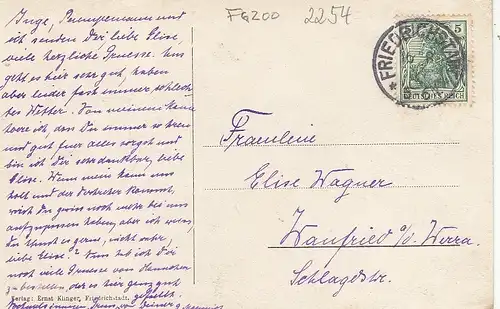 FG200 2254
Inge, Pumpemann und
ich senden Dir liebe Elise
viele herzliche Gruesse. Uns
geht es hier sehr gut, haben
aber leider fast immer schlech-
tes Wetter. Von meinem Manne
hoere ich, dass Du immer so treu
und gut fuer alles sorgst und
bin ich Dir sehr dankbar, liebe
Elise. Wenn mein Mann uns
holt und der Vertreter kommt,
wirst Du gewiss noch mehr bei uns
aufzupassen haben, aber ich weiss,
Du thust es gern, nicht wahr,
liebe Elise? Nun hab ich Dir
noch viele Gruesse von
zu bestellen, der es hier ganz gut
gefaellt.
Verlag: Ernst Klinger, Friedrich-stadt.
FRIEDRICHSTADT
5
DEUTSCHES REICH
Fraeulein
Elise Wagner
Wanfried a/d. Werra.
Schlagdstr.